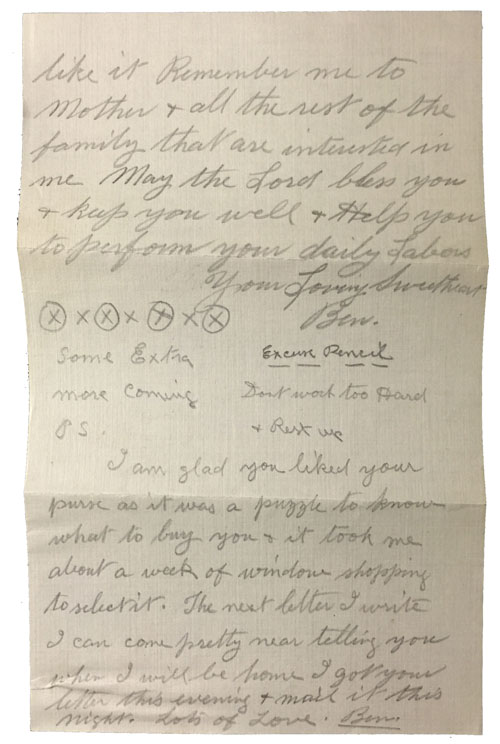 like it Remember me to
Mother + all the rest of the
family that are interested in
me May the Lord bless you
+ keep you well + Help you
to perform your daily Labors
Your Loving Sweetheart
Ben.
x x x x x x x
Some Extra
more Coming
Excuse Pencil
Dont work too Hard
+ Rest up
P S.
I am glad you liked your
purse as it was a puzzle to know
what to buy you + it took me
about a week of window shopping
to select it. The next letter I write
I can come pretty near telling you
when I will be home I got your
letter this evening + mail it this
night. Lots of Love. Ben.